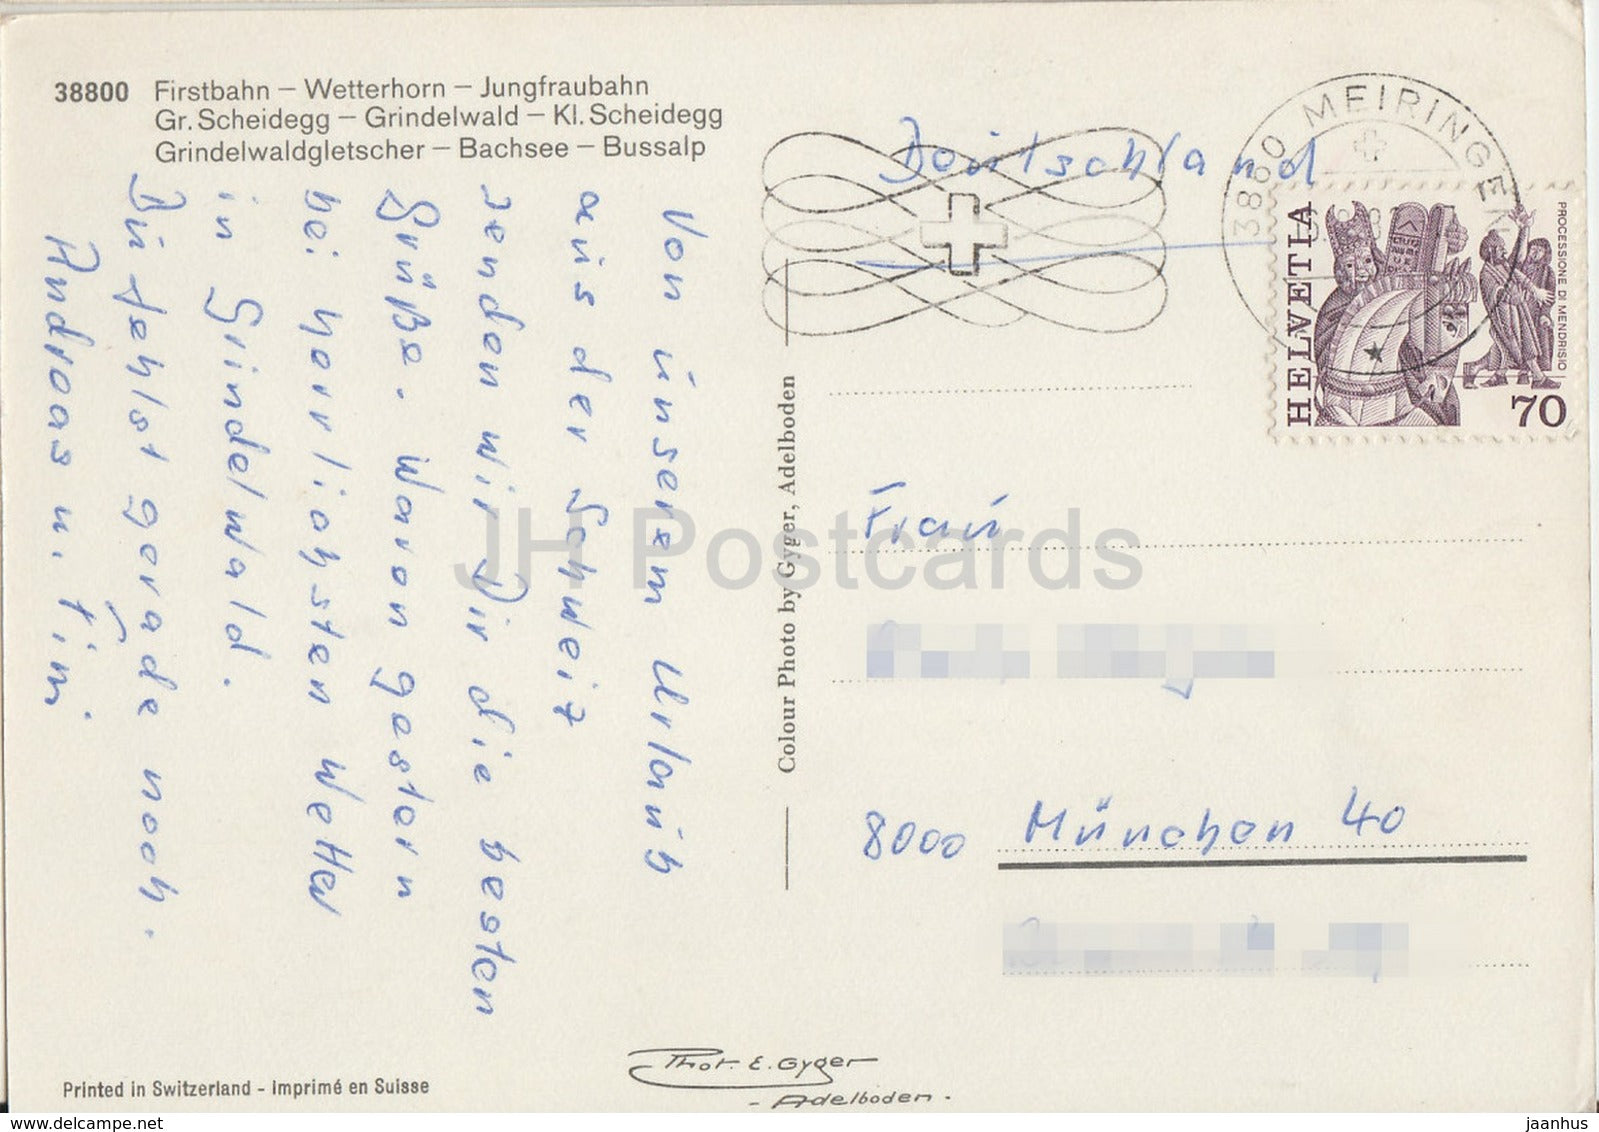 38800 Firstbahn – Wetterhorn – Jungfraubahn
Gr. Scheidegg – Grindelwald – Kl. Scheidegg
Grindelwaldgletscher – Bachsee – Bussalp
Von unserem Urlaub
aus der Schweiz
senden wir Dir die besten
Grüße. Waren gestern
bei herrlichsten Wetter
in Grindelwald.
Du fehlst gerade noch.
Andreas u. Tim.
Colour Photo by Gyger, Adelboden
Deutschland
3860 MEIRINGEN
HELVETIA
PROCESSIONE DI MENDRISIO
70
Frau
8000 München 40
Phot. E. Gyger
- Adelboden -
Printed in Switzerland - Imprimé en Suisse
JH Postcards
delcampe.net
jaanhus